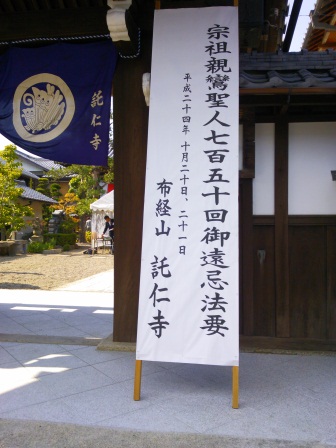 宗祖親鸞聖人七百五十回御遠忌法要
平成二十四年 十月二十日、二十一日
布経山 託仁寺
託仁寺